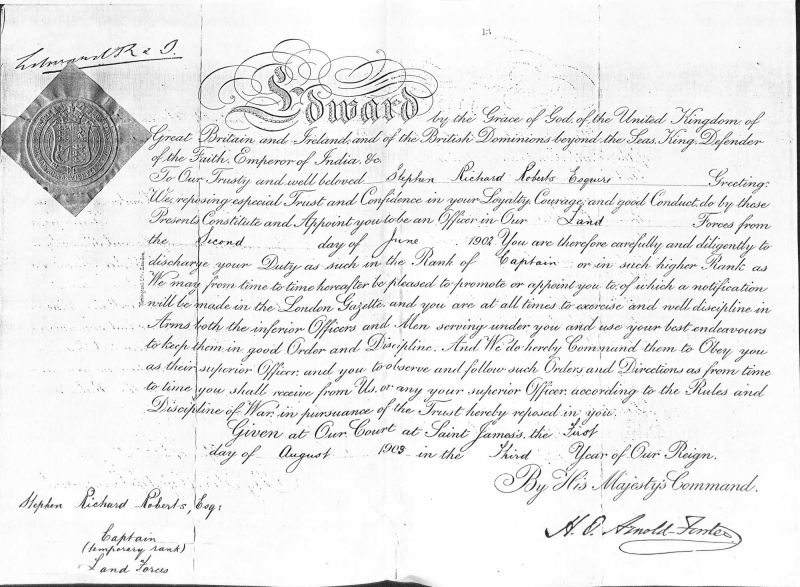 13
Edward R & I.
Edward by the Grace of God, of the United Kingdom of
Great Britain and Ireland, and of the British Dominions beyond the Seas, King, Defender
of the Faith, Emperor of India, &c.
To Our Trusty and well beloved Stephen Richard Roberts Esquire Greeting:
We, reposing especial Trust and Confidence in your Loyalty, Courage, and good Conduct, do by these
Presents Constitute and Appoint you to be an Officer in Our Land Forces from
the Second day of June 1902 You are therefore carefully and diligently to
discharge your Duty as such in the Rank of Captain or in such higher Rank as
We may from time to time hereafter be pleased to promote or appoint you to, of which a notification
will be made in the London Gazette, and you are at all times to exercise and well discipline in
Arms both the inferior Officers and Men serving under you and use your best endeavours
to keep them in good Order and Discipline. And We do hereby Command them to Obey you
as their superior Officer, and you to observe and follow such Orders and Directions as from time
to time you shall receive from Us, or any your superior Officer, according to the Rules and
Discipline of War, in pursuance of the Trust hereby reposed in you.
Given at Our Court at Saint James's, the First
day of August 1903 in the Third Year of Our Reign.
By His Majesty's Command.
Stephen Richard Roberts, Esq:
H. O. Arnold-Forster
Captain
(temporary rank)
Land Forces